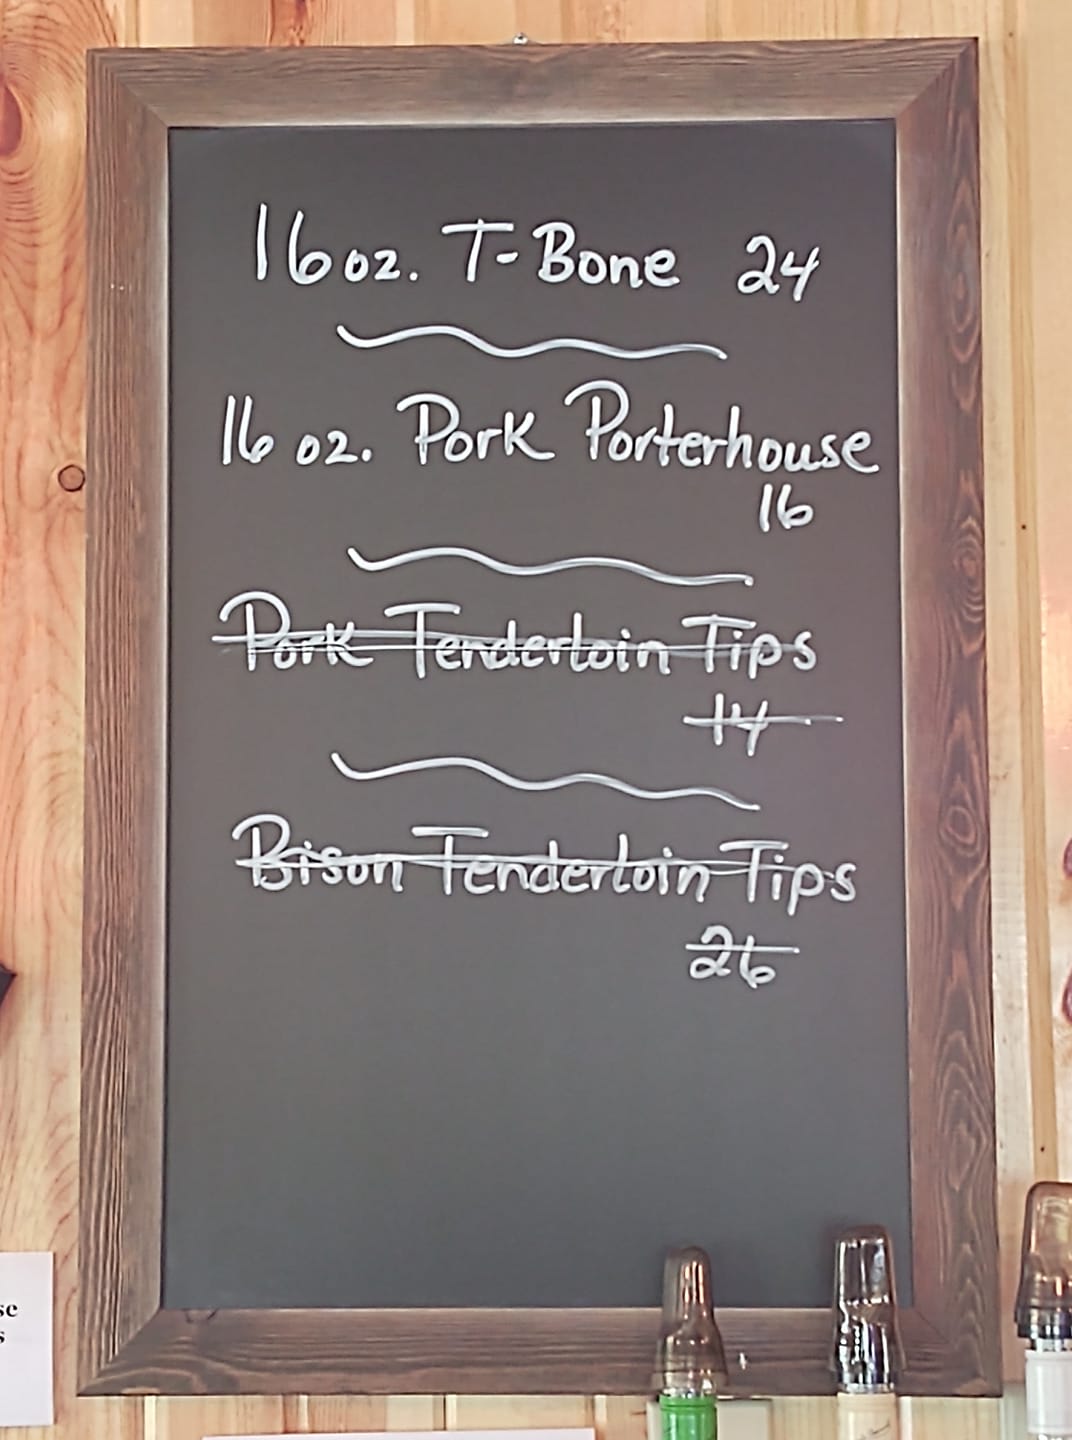 16 oz. T-Bone 24
16 oz. Pork Porterhouse
16
Pork Tenderloin Tips
14
Bison Tenderloin Tips
26
se
s